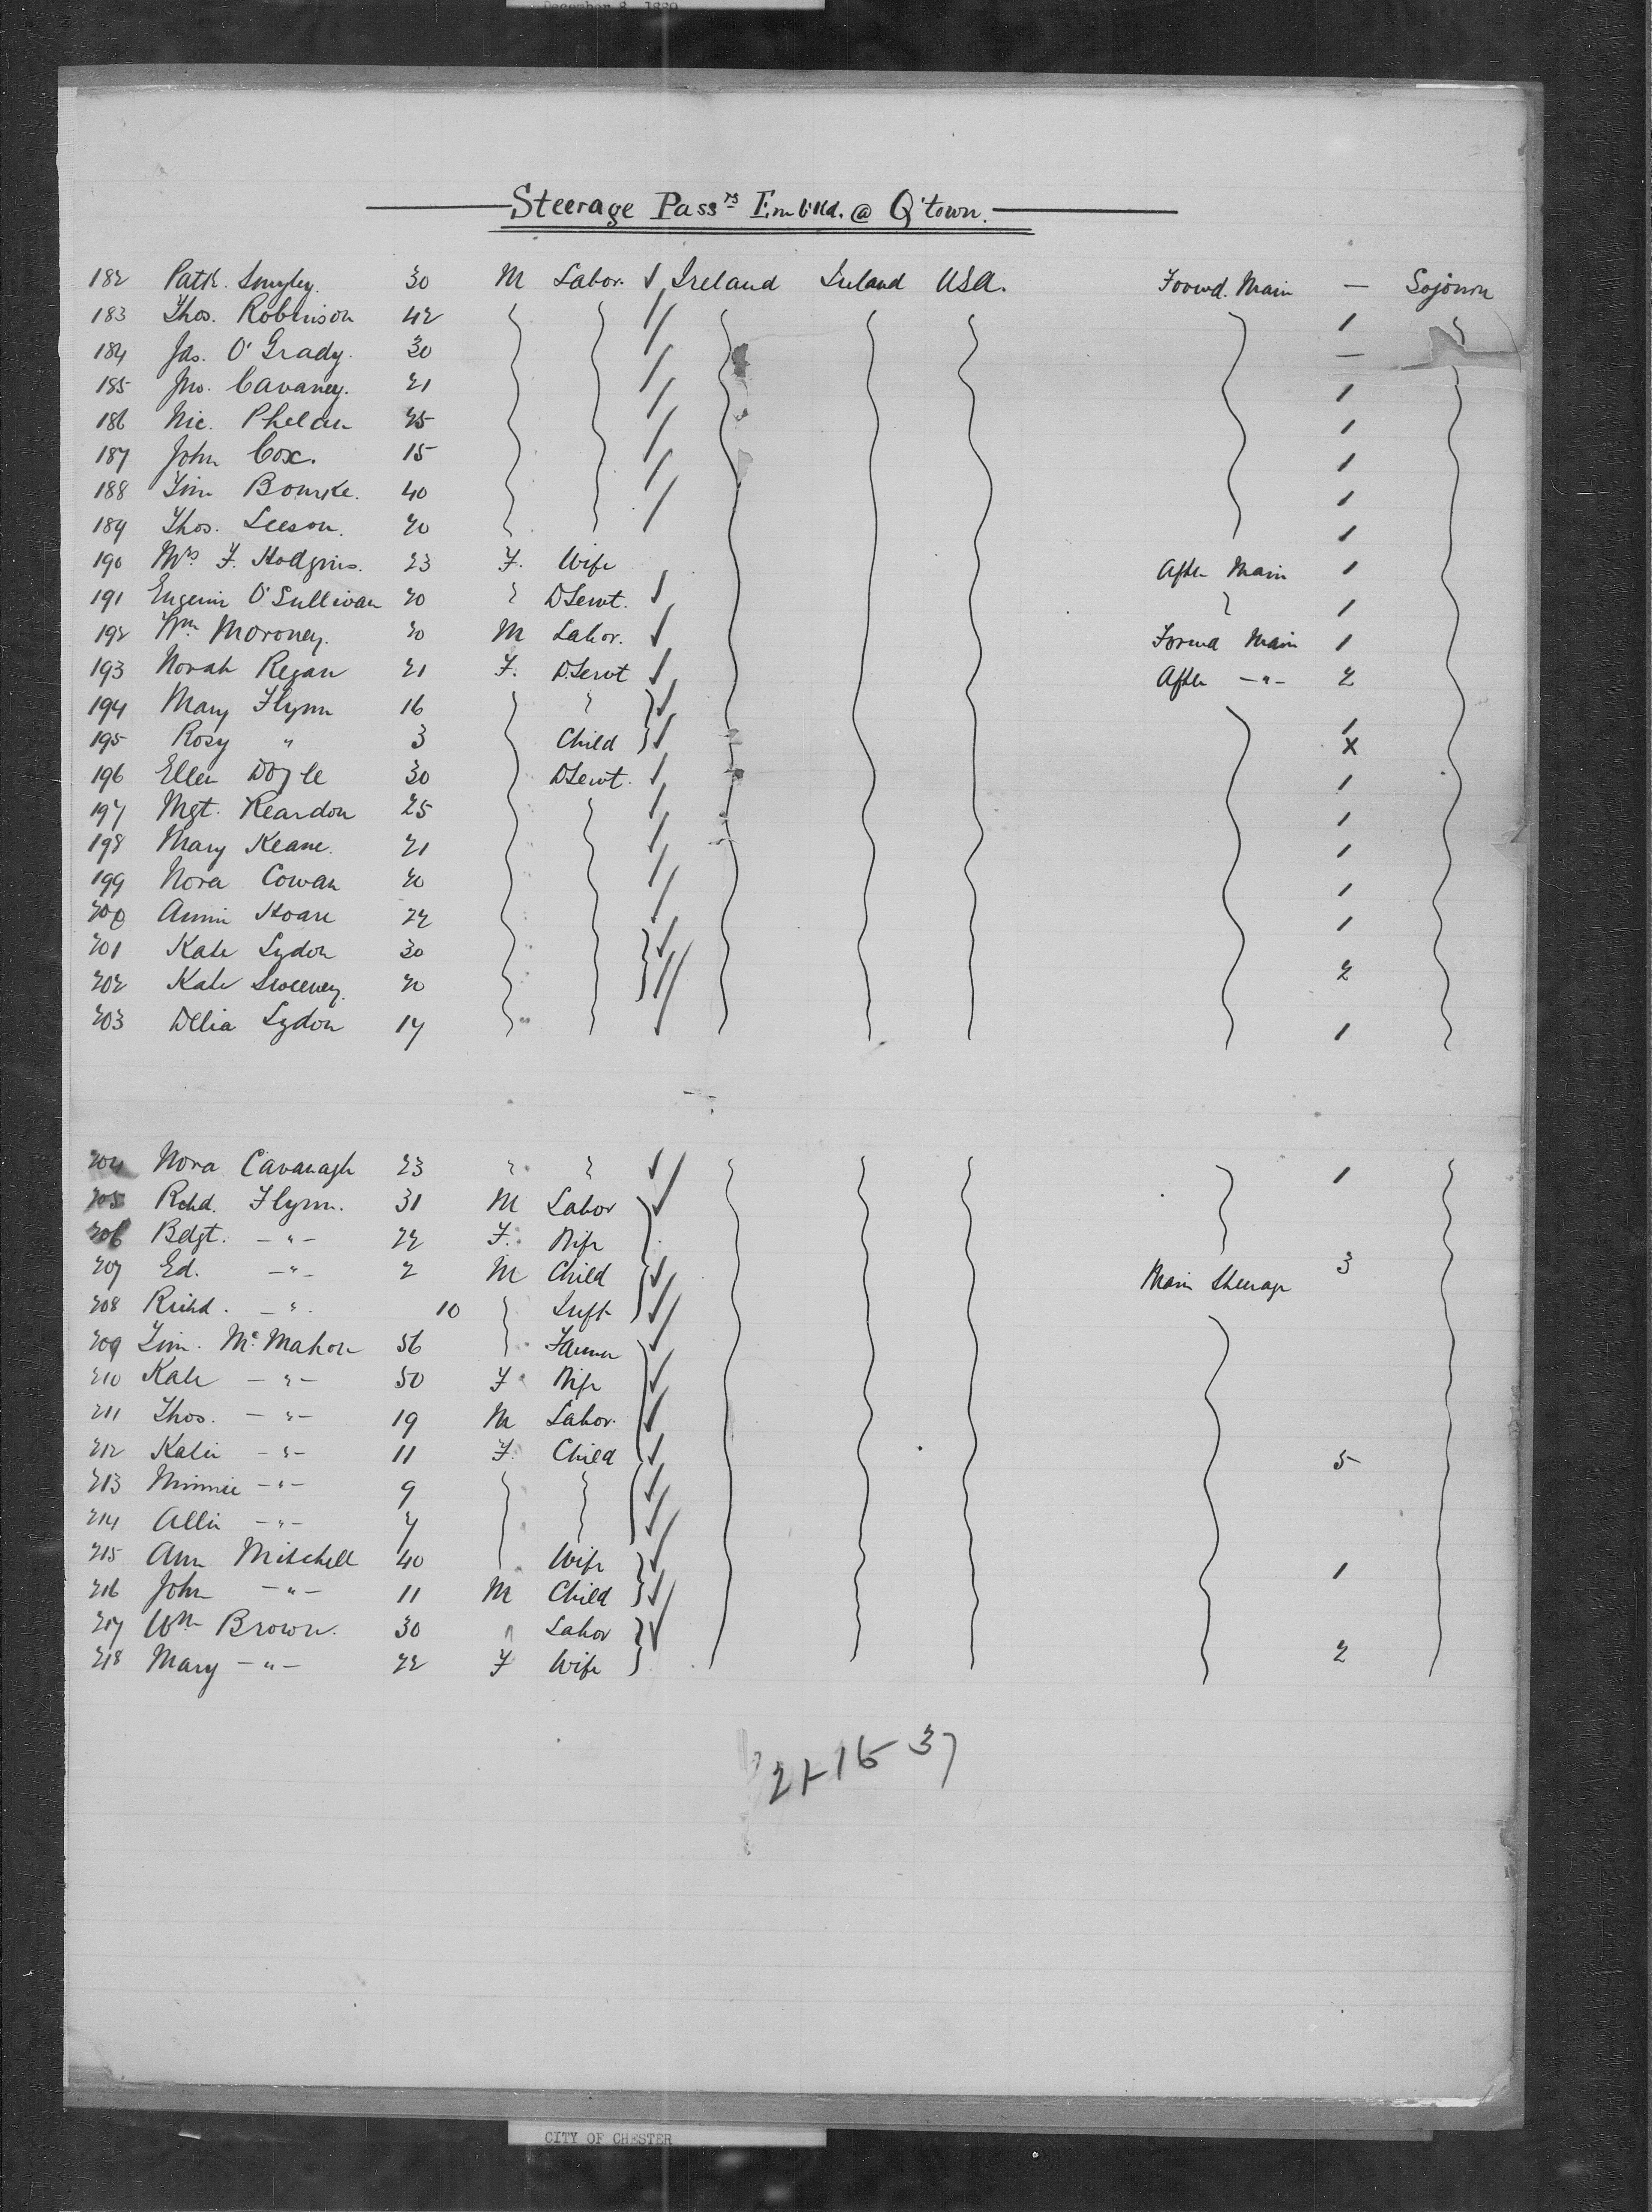 Steerage Passrs Embkd. @ Q'town.
182 Patk. Smyley. 30 M Labor. Ireland Ireland USA. Forwd. Main — Sojourn
183 Thos. Robinson 42 1
184 Jas. O'Grady. 30 —
185 Jno. Cavaney. 21 1
186 Nic. Phelan 25 1
187 John Cox. 15 1
188 Tim Bourke. 40 1
189 Thos. Leeson. 20 1
190 Mrs F. Hodgins. 23 F. Wife After Main 1
191 Eugenie O'Sullivan 20 DServt. 1
192 Wm Moroney. 20 M Labor. Forwd Main 1
193 Norah Regan 21 F. DServt After -"- 2
194 Mary Flynn 16 1
195 Rosy " 3 Child X
196 Ellen Doyle 30 DServt. 1
197 Mgt. Reardon 25 1
198 Mary Keane. 21 1
199 Nora Cowan 20 1
200 Annie Hoare 22 1
201 Kate Lydon 30
202 Kate Sweeney. 20 2
203 Delia Lydon 17 1
204 Nora Cavanagh 23 1
205 Rchd. Flynn. 31 M Labor
206 Bdgt. -"- 22 F. Wife
207 Ed. -"- 2 M Child Main Steerage 3
208 Richd. -"- 10 Inft
209 Tim. McMahon 56 Farmer
210 Kate -"- 50 F Wife
211 Thos. -"- 19 M Labor.
212 Katie -"- 11 F. Child 5
213 Minnie -"- 9
214 Allie -"- 7
215 Ann Mitchell 40 Wife 1
216 John -"- 11 M Child
217 Wm Brown. 30 " Labor
218 Mary -"- 22 F Wife 2
21-16-37
CITY OF CHESTER